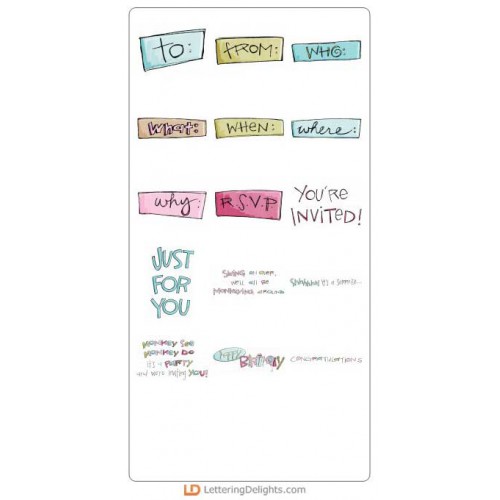 to:
from:
WHO:
What:
WHEN:
where:
why:
R.S.V.P
YOU'RE
INVITED!
JUST
FOR
YOU
SWING on over,
we'll all be
MONKEYING around
Shhhhhh it's a surprise...
MONKEY SEE
MONKEY DO
it's a PARTY
and we're inviting YOU!
happy
BIRTHDAY
CONGRATULATIONS
LD LetteringDelights.com